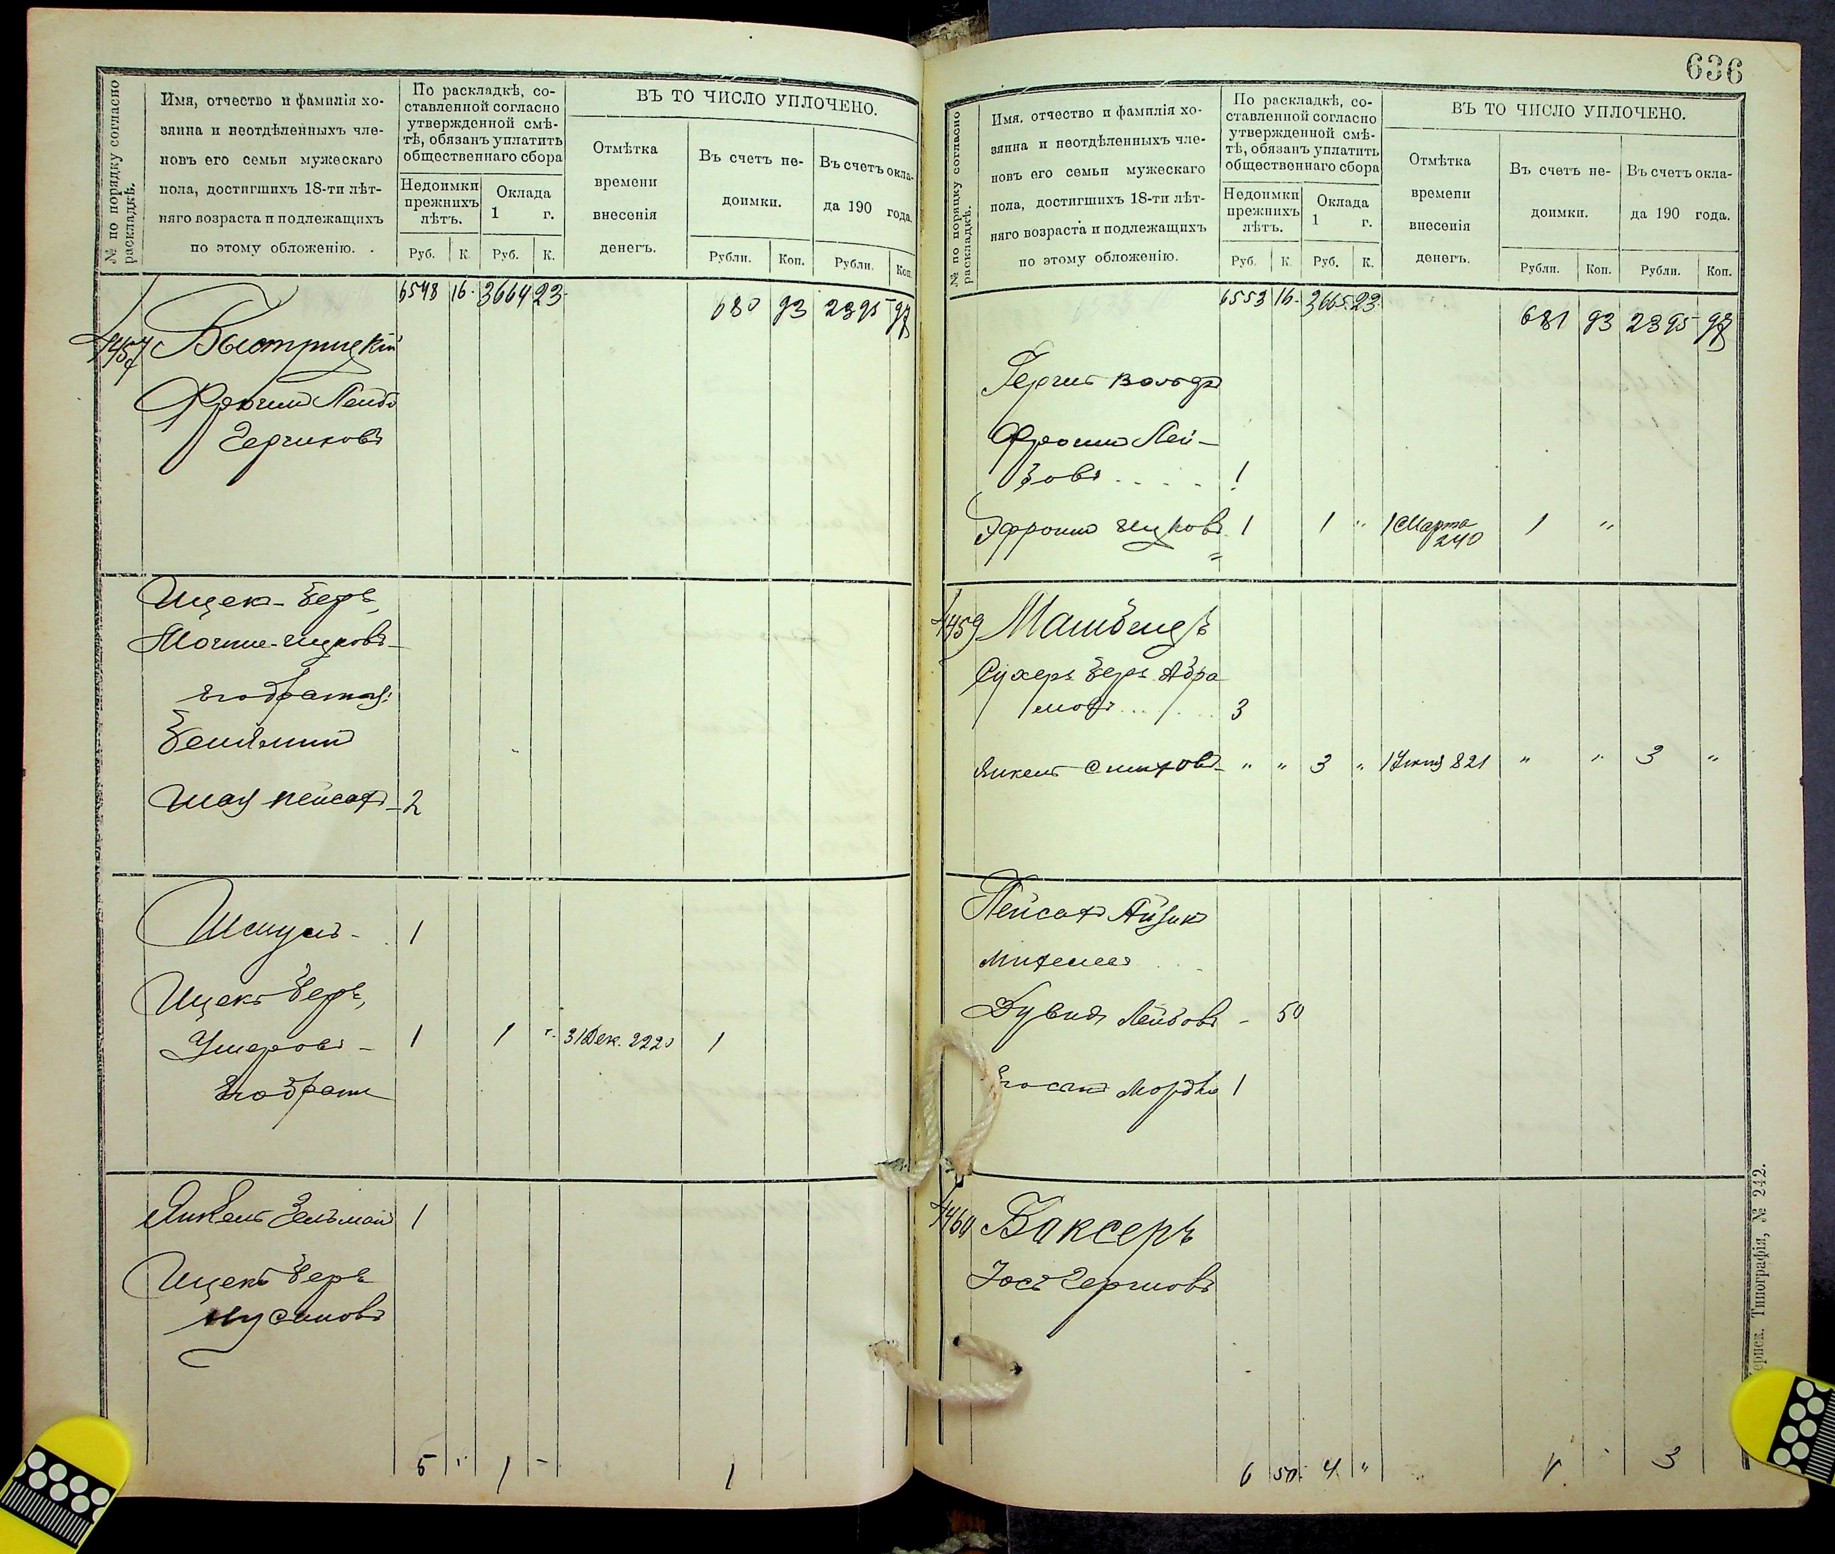 № по порядку согласно раскладкѣ.
Имя, отчество и фамилія хо-
зяина и неотдѣленныхъ чле-
новъ его семьи мужескаго
пола, достигшихъ 18-ти лѣт-
няго возраста и подлежащихъ
по этому обложенію.
По раскладкѣ, со-
ставленной согласно
утвержденной смѣ-
тѣ, обязанъ уплатить
общественнаго сбора
Недоимки
прежнихъ
лѣтъ.
Оклада
1 г.
Руб. К. Руб. К.
ВЪ ТО ЧИСЛО УПЛОЧЕНО.
Отмѣтка
времени
внесенія
денегъ.
Въ счетъ не-
доимки.
Въ счетъ окла-
да 190 года.
Рубли. Коп. Рубли. Коп.
6548 16 3664 23 680 93 2395 98
1457 Быстрицкій
Фроимъ Лейбъ
Герчиковъ
Ицек-Беръ
Мошке-Ицковъ
его братья:
Беніаминъ
Шая Пейсахъ 2
Шмуль 1
Ицекъ Беръ,
Умеровъ 1 1 31 Дек. 2220 1
его братъ
Янкель Зельманъ 1
Ицекъ Беръ
Нусимовъ
5 1 1
636
№ по порядку согласно раскладкѣ.
Имя, отчество и фамилія хо-
зяина и неотдѣленныхъ чле-
новъ его семьи мужескаго
пола, достигшихъ 18-ти лѣт-
няго возраста и подлежащихъ
по этому обложенію.
По раскладкѣ, со-
ставленной согласно
утвержденной смѣ-
тѣ, обязанъ уплатить
общественнаго сбора
Недоимки
прежнихъ
лѣтъ.
Оклада
1 г.
Руб. К. Руб. К.
ВЪ ТО ЧИСЛО УПЛОЧЕНО.
Отмѣтка
времени
внесенія
денегъ.
Въ счетъ не-
доимки.
Въ счетъ окла-
да 190 года.
Рубли. Коп. Рубли. Коп.
6553 16 3665 23 681 93 2395 98
Гершъ Вольфъ
Фроимъ Лей-
зовъ 1
Эфроимъ Ицковъ 1 1 " 1 Марта 240 1 "
1459
Сухеръ Беръ Абра
мовъ 3
Янкель " " 3 " 821 " " 3 "
Пейсахъ Айзикъ
Михелевъ
Дувидъ Лейбовъ - 50
Мордко 1
1460 Баксеръ
Іосъ Гершовъ
6 50 4 " 1 3
Типографія, № 242.